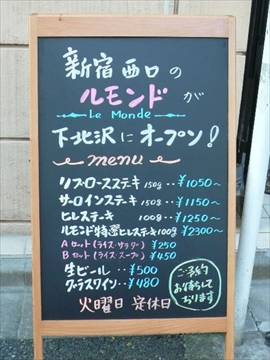 新宿西口の
ルモンドが
Le Monde
下北沢にオープン!
menu
リブロースステーキ 150g‥¥1050~
サーロインステーキ 150g‥¥1150~
ヒレステーキ 100g‥¥1250~
ルモンド特選ヒレステーキ100g¥2300~
Aセット(ライス・サラダー) ¥250
Bセット(ライス・スープ) ¥450
生ビール‥¥500
グラスワイン‥¥480
ご予約
お待ちして
おります
火曜日 定休日